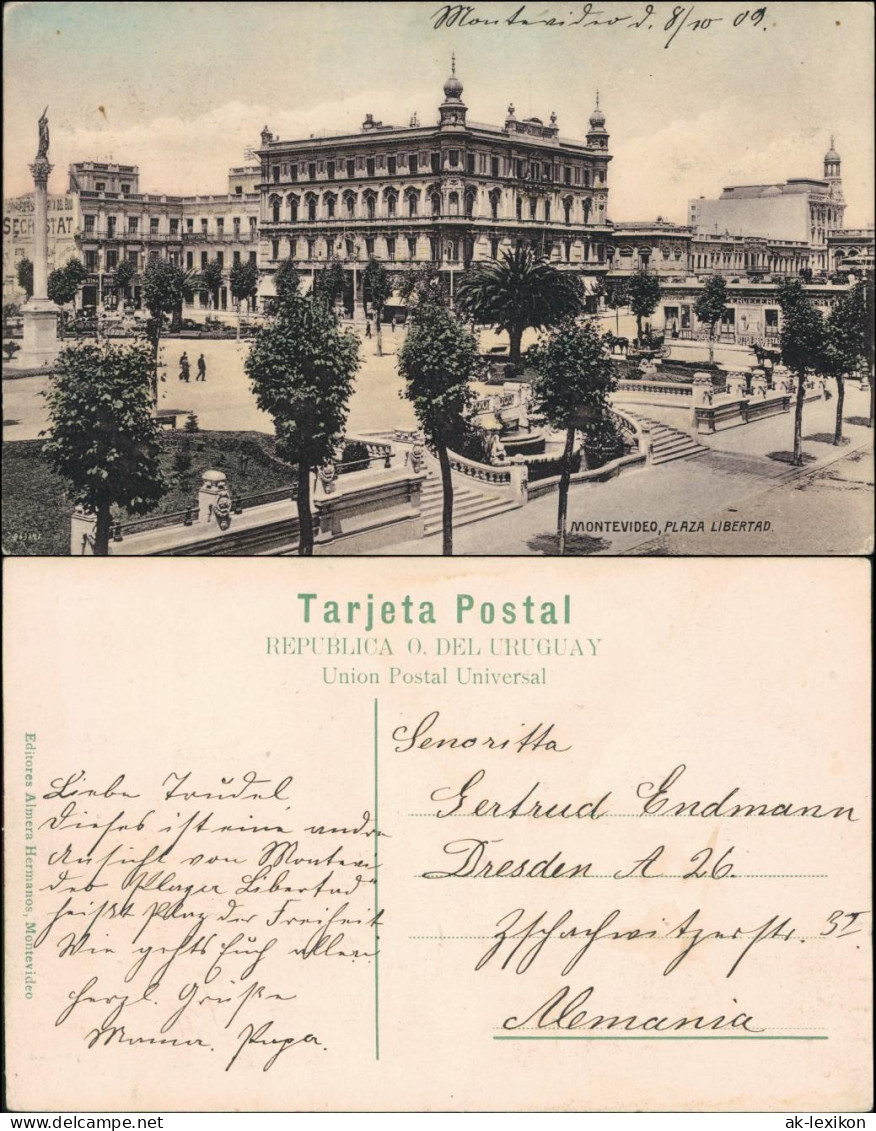 Montevideo d. 8/10 09.
SEC
MONTEVIDEO, PLAZA LIBERTAD.
Tarjeta Postal
REPUBLICA O. DEL URUGUAY
Union Postal Universal
Editores Almera Hermanos, Montevideo
Liebe Trudel
Dieses ist eine andre
Ansicht von Montevi
deo "Plaza Libertad"
heißt Plaz der Freiheit
Wie gehts Euch allen
herzl. Grüße
Mama. Papa.
Senoritta
Gertrud Endmann
Dresden A 26.
Zschachwitzerstr. 32 I
Alemania
ak-lexikon